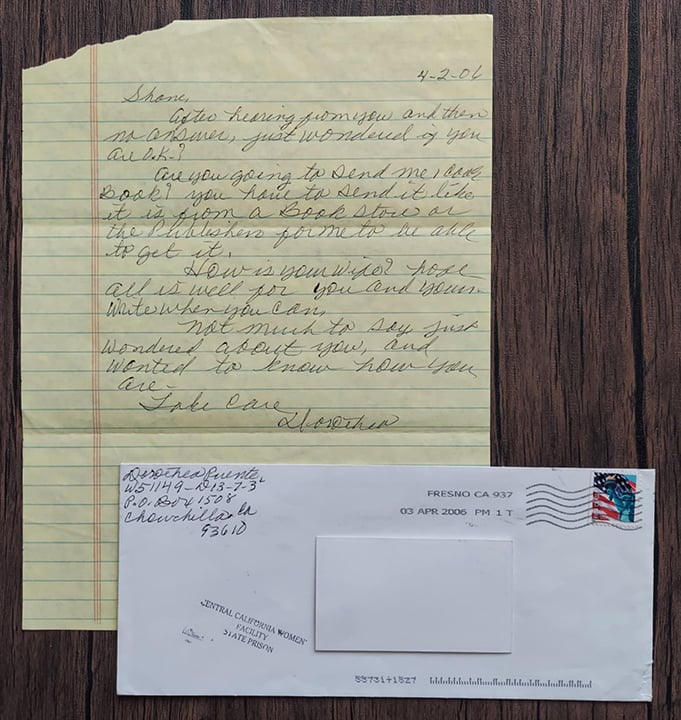 4-2-06
Shane,
After hearing from you and then
no answer, just wondered if you
are O.K-?
Are you going to send me, Cook
Book? you have to send it like
it is from a Book Store or
the Publishers for me to be able
to get it.
How is your wife? hope
all is well for you and yours.
Write when you can.
Not much to say just
wondered about you, and
wanted to know how you
are-
Take Care
Dorothea
Dorothea Puente
W51149-D13-7-3L
P.O. Box 1508
Chowchilla, Ca
93610
FRESNO CA 937
03 APR 2006 PM 1 T
CENTRAL CALIFORNIA WOMEN'
FACILITY
STATE PRISON
55731+1527